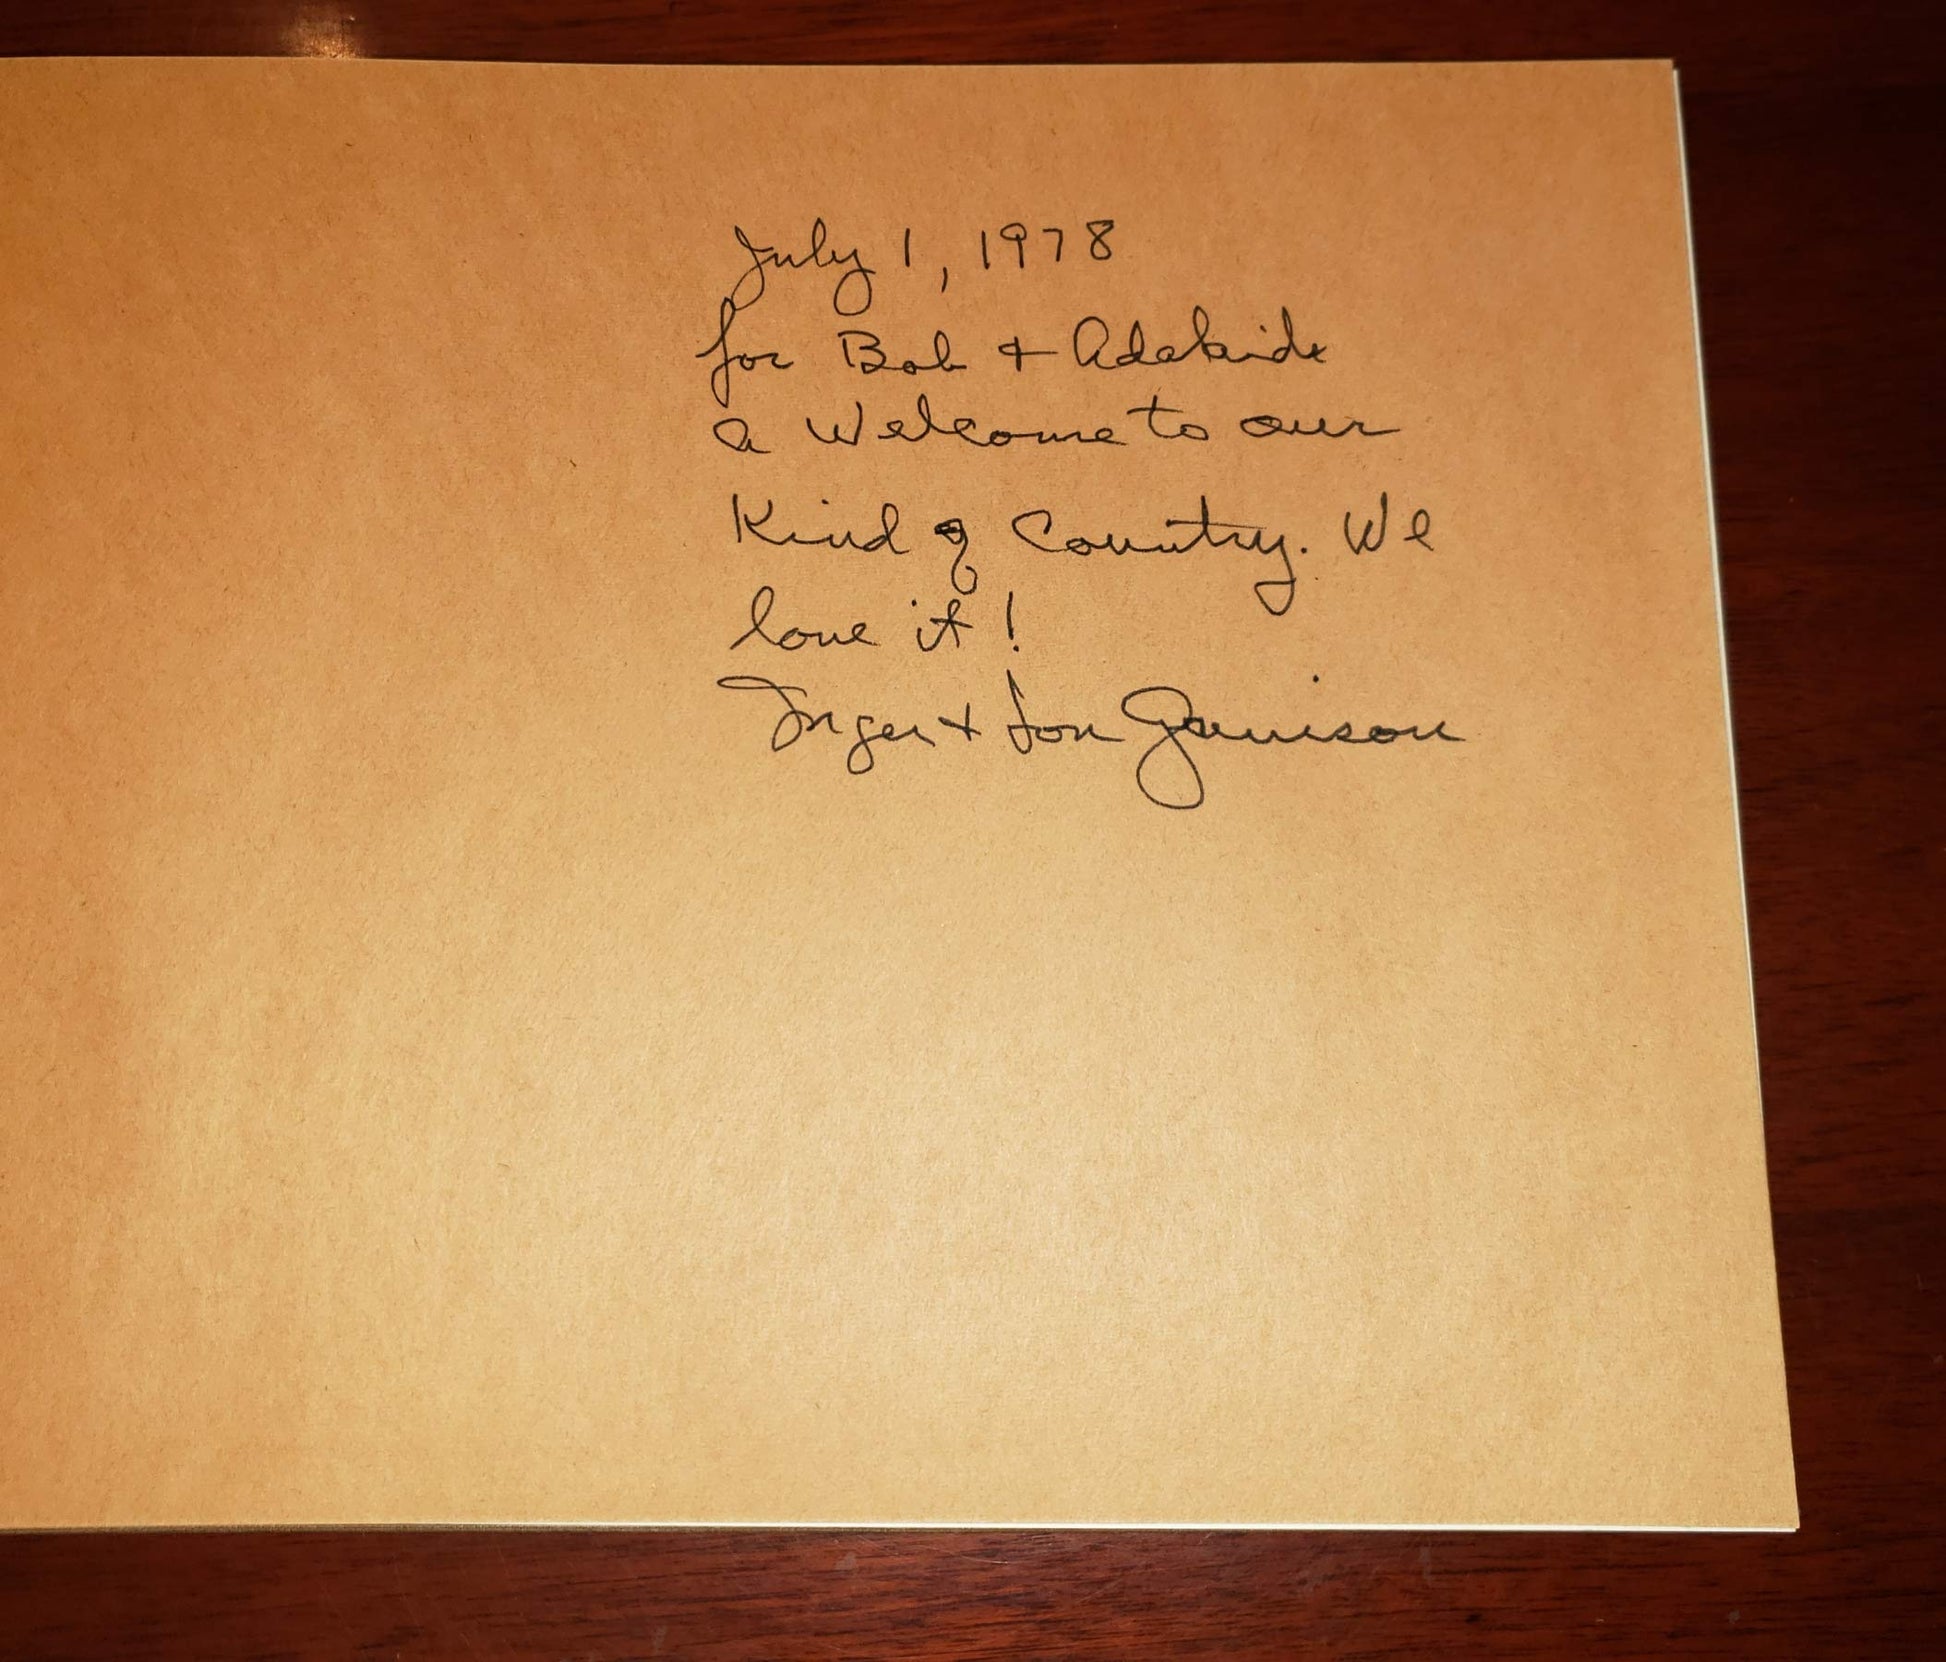 July 1, 1978
for Bob + Adelaide
a Welcome to our
Kind of Country. We
love it!
Inger + Jon